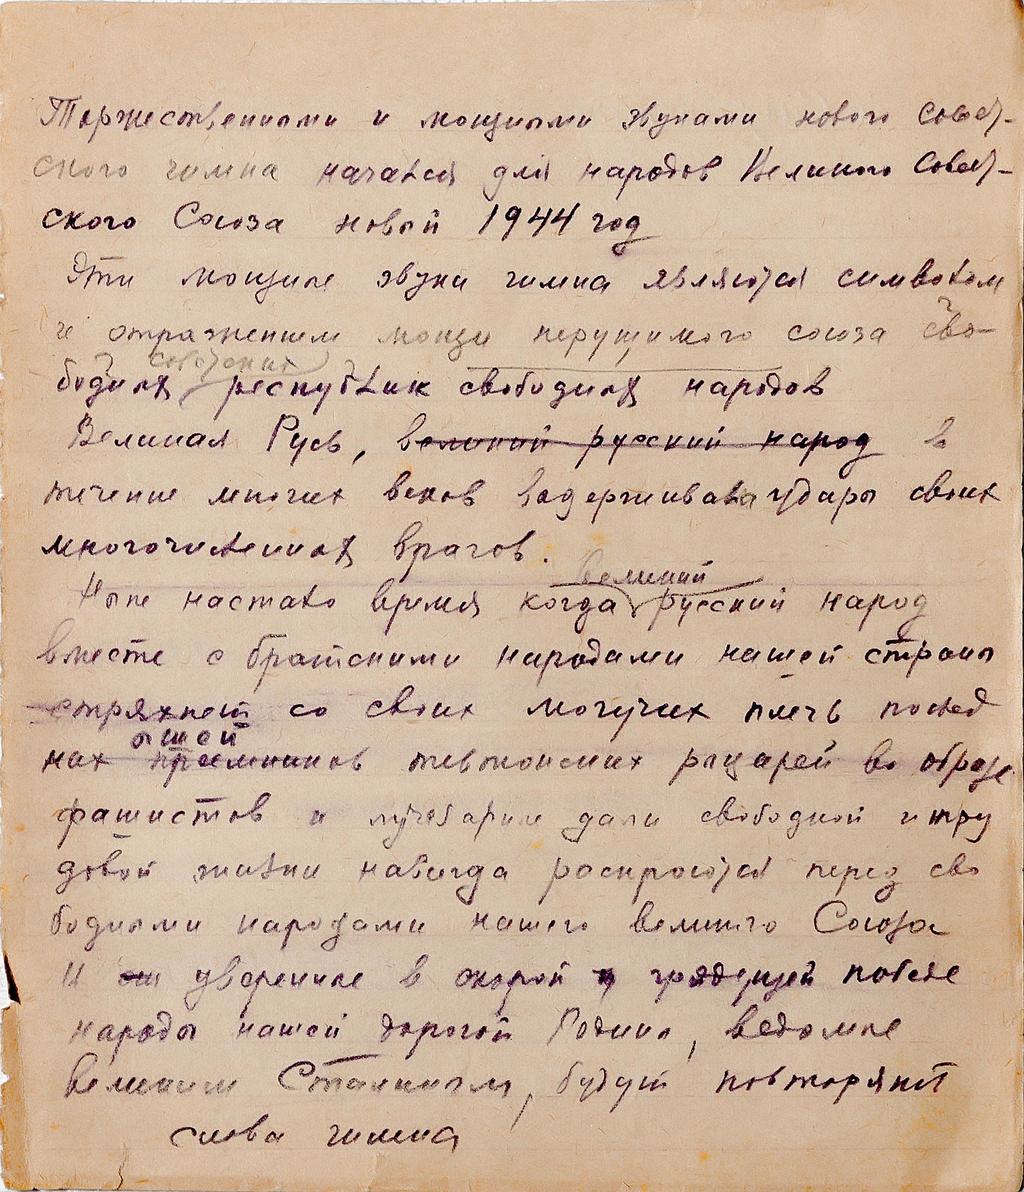 Торжественными и мощными звуками нового Совет-
ского гимна начался для народов Великого Совет-
ского Союза новый 1944 год
Эти мощные звуки гимна являются символом
и отражением мощи нерушимого союза сво-
советских
бодных республик свободных народов
Великая Русь, великий русский народ в
течение многих веков выдерживала удары своих
многочисленных врагов.
великий
Ныне настало время когда русский народ
вместе с братскими народами нашей страны
стряхнет со своих могучих плеч послед
ышей
них преемников тевтонских рыцарей во образе
фашистов и лучезарные дали свободной и тру
довой жизни навсегда раскроются перед сво
бодными народами нашего великого Союза
И уверенные в скорой грядущей победе
народы нашей дорогой Родины, ведомые
великим Сталиным, будут повторять
слова гимна